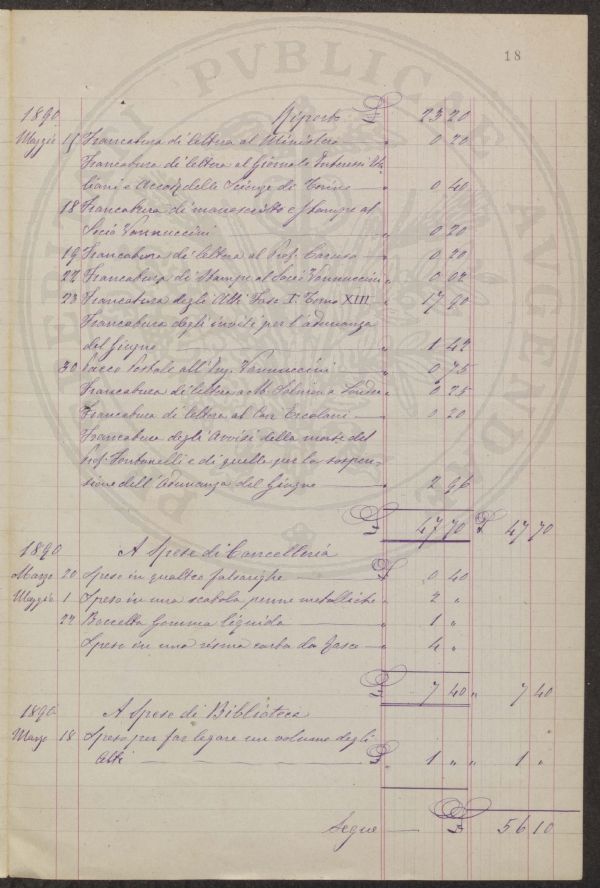 18
1890 Riporto £ 23 20
Maggio 15 Francatura di lettera al Ministero " 0 20
Francatura di lettera al Giornale Interessi
e Accad. delle Scienze di Torino " 0 40
18 Francatura di manoscritto e stampe al
Socio Vannuccini " 0 20
19 Francatura di lettera al Prof. Caruso " 0 20
22 Francatura di stampe al Socio Vannuccini " 0 02
23 Francatura degli Atti Fasc. I. Tomo XIII " 17 90
Francatura degli inviti per l'adunanza
del Giugno " 1 42
30 Pacco Postale all'Ing. Vannuccini " 0 75
Francatura di lettera a M. a Londra 0 25
Francatura di lettera al Ercolani " 0 20
Francatura degli Avvisi della morte del
Prof. Fontanelli e di quelle per la sospen-
sione dell'Adunanza del Giugno " 2 96
£ 47 70 £ 47 70
1890 A Spese di Cancelleria
Marzo 20 Spese in quattro falsarighe £ 0 40
Maggio 1 Spesa in una scatola penne metalliche " 2 "
22 Boccetta Gomma liquida " 1 "
Spese in una risma carta da " 4 "
£ 7 40 " 7 40
1890 A Spese di Biblioteca
Marzo 18 Spesa per far legare un volume degli
Atti £ 1 " " 1 "
Segue £ 56 10